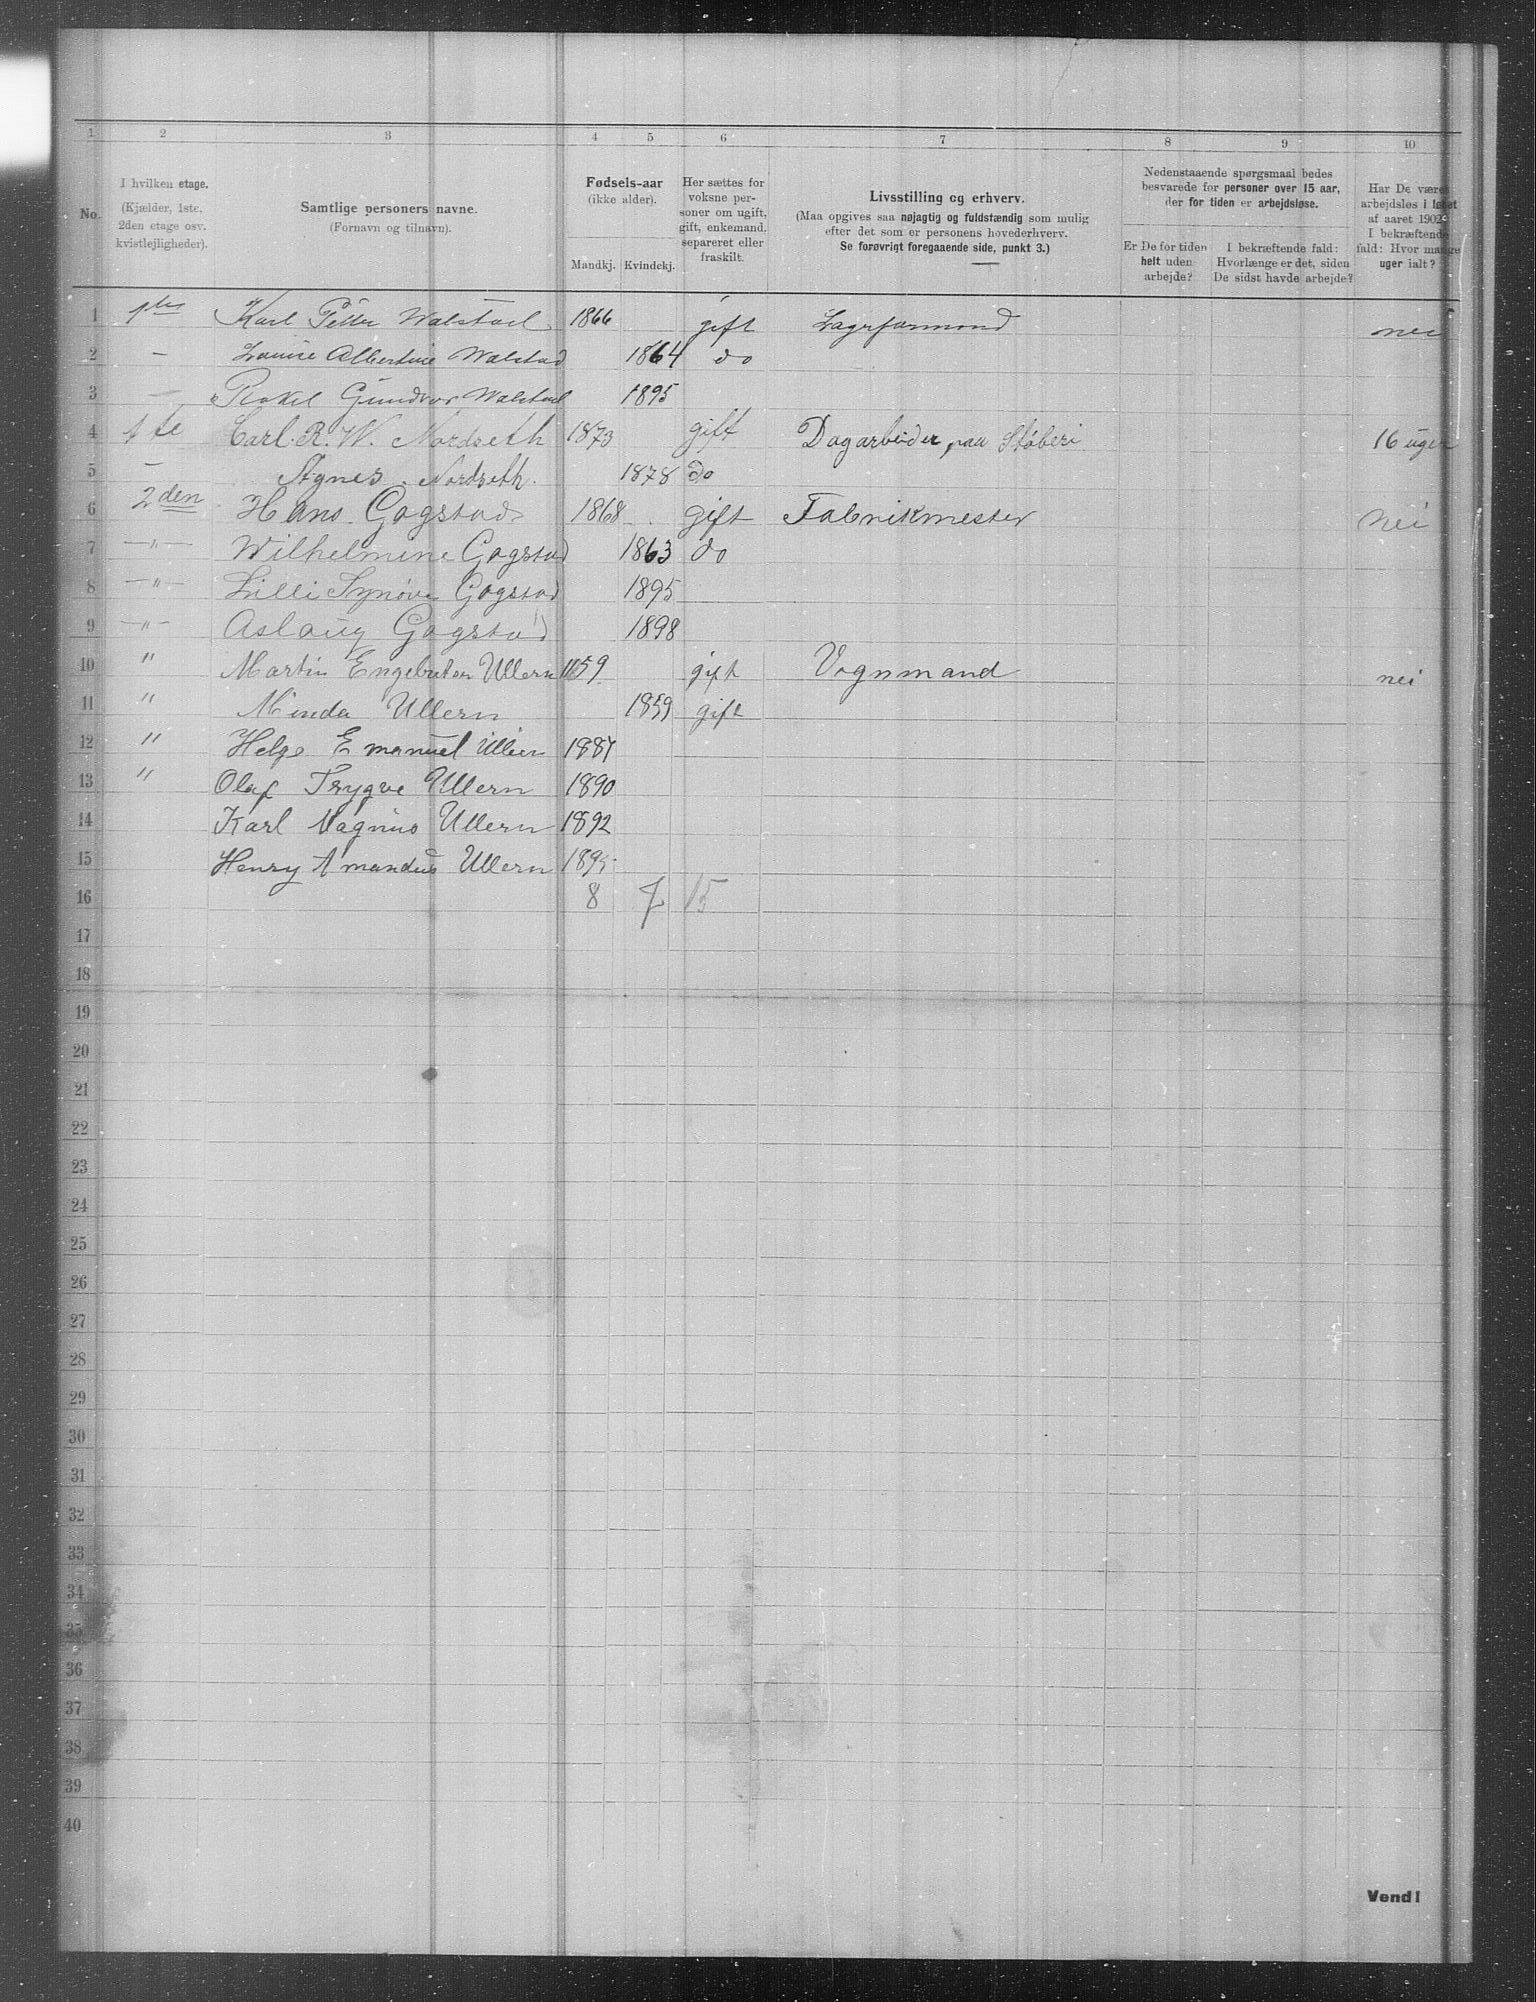 1 2 3 4 5 6 7 8 9 10
No.
I hvilken etage.
(Kjælder, 1ste,
2den etage osv.
kvistlejligheder).
Samtlige personers navne.
(Fornavn og tilnavn).
Fødsels-aar
(ikke alder).
Mandkj. Kvindekj.
Her sættes for
voksne per-
soner om ugift,
gift, enkemand,
separeret eller
fraskilt.
Livsstilling og erhverv.
(Maa opgives saa nøjagtig og fuldstændig som mulig
efter det som er personens hovederhverv.
Se forøvrigt foregaaende side, punkt 3.)
Nedenstaaende spørgsmaal bedes
besvarede for personer over 15 aar,
der for tiden er arbejdsløse.
Er De for tiden
helt uden
arbejde?
I bekræftende fald:
Hvorlænge er det, siden
De sidst havde arbejde?
Har De været
arbejdsløs i løbet
af aaret 1902
I bekræftende
fald: Hvor mange
uger ialt?
1 Karl Petter Walstad 1866 gift Lagrformand nei
2 — Louise Albertine Walstad 1864 do
3 — Rakel Gundvor Walstad 1895
4 1te Carl. R. W. Nordseth 1873 gift Dagarbeider paa Støberi 16 uger
5 — Agnes Nordseth. 1878 do
6 2den Hans Gogstad 1868 gift Fabrikmester nei
7 —"— Wilhelmine Gogstad 1863 do
8 —"— Lilli Synøve Gogstad 1895
9 —"— Aslaug Gogstad 1898
10 " Martin Engebretsen Ullern 1859 gift Vognmand nei
11 " Minda Ullern 1859 gift
12 " Helge Emanuel Ullern 1887
13 " Olaf Trygve Ullern 1890
14 Karl Magnus Ullern 1892
15 Henry Amandus Ullern 1895
16 8 7 15
17
18
19
20
21
22
23
24
25
26
27
28
29
30
31
32
33
34
35
36
37
38
39
40
Vend!